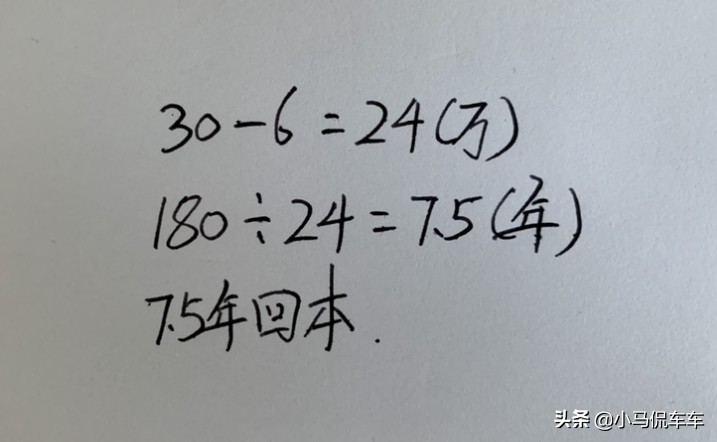 30-6=24(万)
180÷24=7.5(年)
7.5年回本.
头条 @小马侃车车